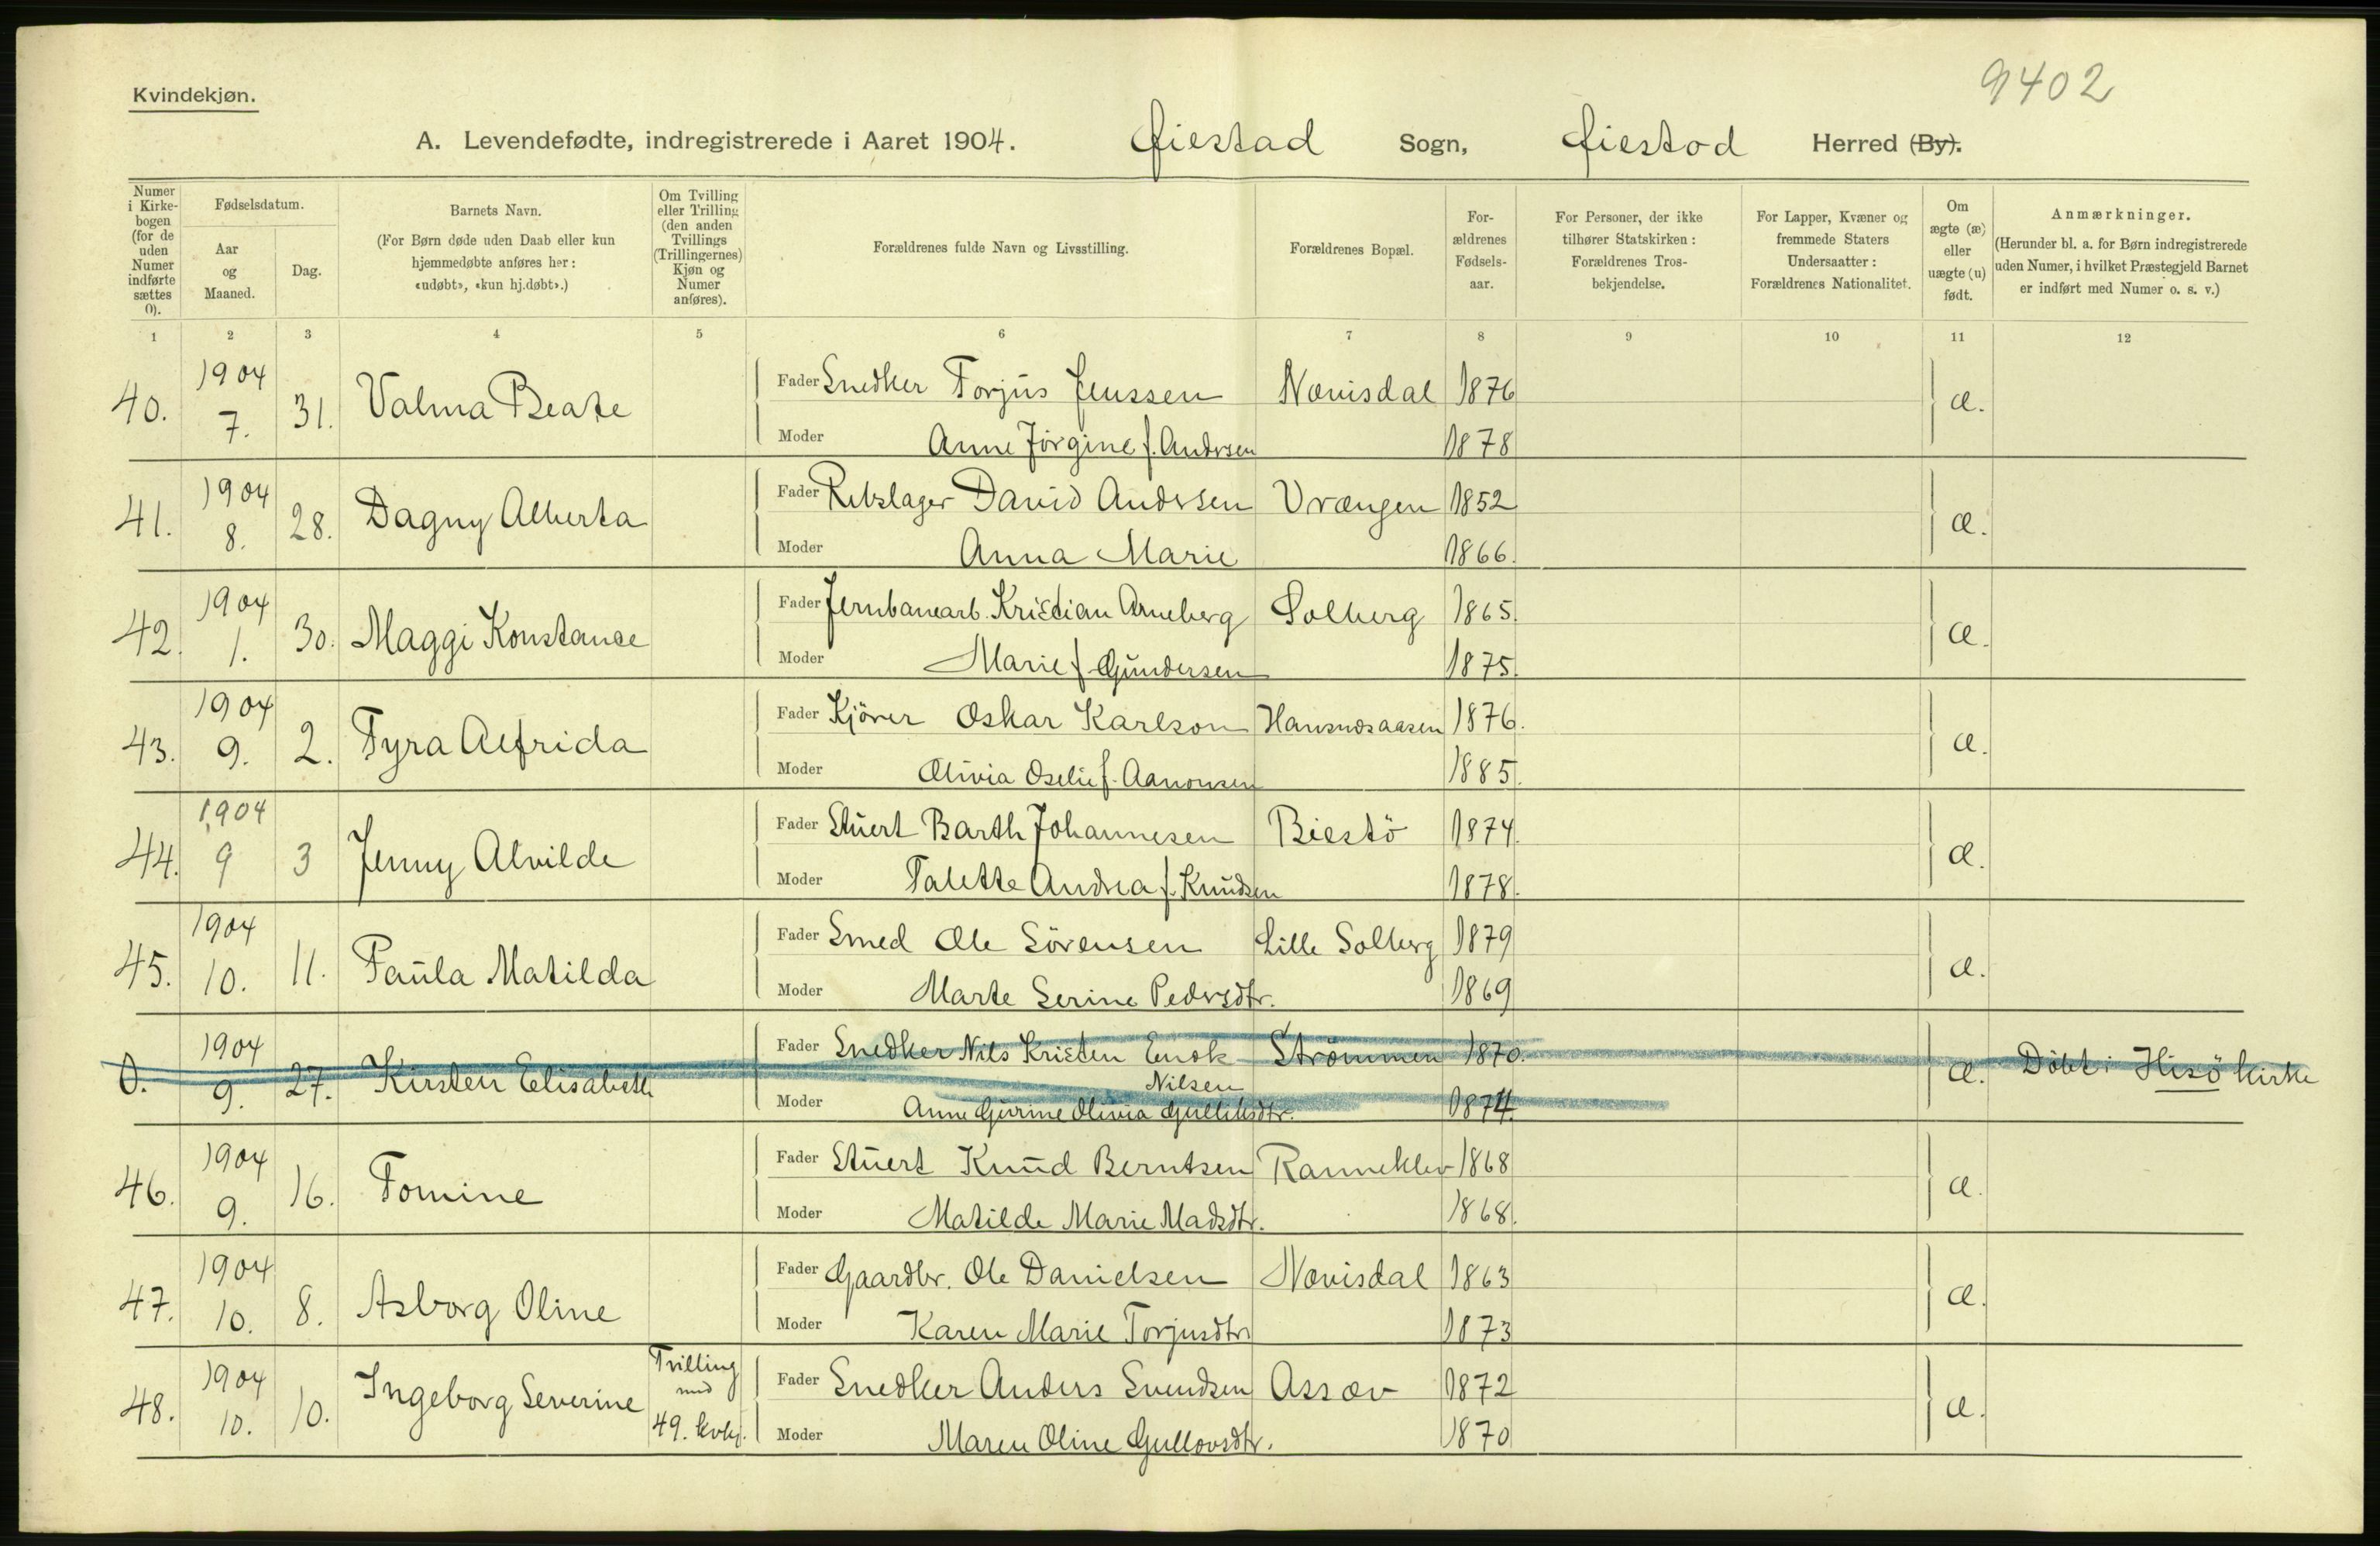 9402
Kvindekjøn.
A. Levendefødte, indregistrerede i Aaret 1904. Øiestad Sogn, Øiestad Herred (By).
Numer i Kirkebogen (for de uden Numer indførte sættes 0).
Fødselsdatum.
Aar og Maaned.
Dag.
Barnets Navn.
(For Børn døde uden Daab eller kun hjemmedøbte anføres her: «udøbt», «kun hj.døbt».)
Om Tvilling eller Trilling (den anden Tvillings (Trillingernes) Kjøn og Numer anføres).
Forældrenes fulde Navn og Livsstilling.
Forældrenes Bopæl.
For-ældrenes Fødsels-aar.
For Personer, der ikke tilhører Statskirken: Forældrenes Tros-bekjendelse.
For Lapper, Kvæner og fremmede Staters Undersaatter: Forældrenes Nationalitet.
Om ægte (æ) eller uægte (u) født.
Anmærkninger.
(Herunder bl. a. for Børn indregistrerede uden Numer, i hvilket Præstegjeld Barnet er indført med Numer o. s. v.)
1 2 3 4 5 6 7 8 9 10 11 12
40. 1904 7. 31. Valma Beate Fader Snedker Torjus Jenssen Nævisdal 1876 æ.
Moder Anne Jörgine f. Andrsen 1878
41. 1904 8. 28. Dagny Alberta Fader Rebslager David Andrsen Vrængen 1852 æ.
Moder Anna Marie 1866.
42. 1904 1. 30. Maggi Konstance Fader Jernbanearb. Kristian Arneberg Solberg 1865. æ.
Moder Marie f. Gundersen 1875.
43. 1904 9. 2. Tyra Alfrida Fader Kjörer Oskar Karlson Hansnesaasen 1876. æ.
Moder Olivia Oselie f. Aanonsen 1885.
44. 1904 9 3 Jenny Alvilde Fader Stuert Barth Johannesen Biestö 1874. æ.
Moder Talette Andrea f. Knudsen 1878.
45. 1904 10. 11. Paula Matilda Fader Smed Ole Sörensen Lille Solberg 1879 æ.
Moder Marte Serine Pedrsdtr. 1869
0. 1904 9. 27. Kirsten Elisabeth Fader Snedker Nils Kristen Enok Nilsen Strömmen 1870. æ. Döbt i Hisö kirke
Moder Anne Gurine Olivia Gulliksdtr. 1874
46. 1904 9. 16. Tomine Fader Stuert Knud Berntsen Ranneklev 1868 æ.
Moder Matilde Marie Madsdtr. 1868.
47. 1904 10. 8. Asborg Oline Fader Gaardbr. Ole Danielsen Nævisdal 1863 æ.
Moder Karen Marie Torjusdtr 1873
48. 1904 10. 10. Ingeborg Severine Tvilling med 49. kvkj. Fader Snedker Anders Svendsen Assæv 1872 æ.
Moder Maren Oline Gullovsdtr. 1870